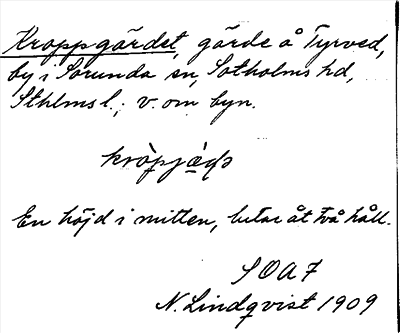 Kroppgärdet, gärde å Tyrved,
by i Sorunda sn, Sotholms hd,
Sthlms l.; v. om byn.
En höjd i mitten, lutar åt två håll.
SOA 7
N. Lindqvist 1909